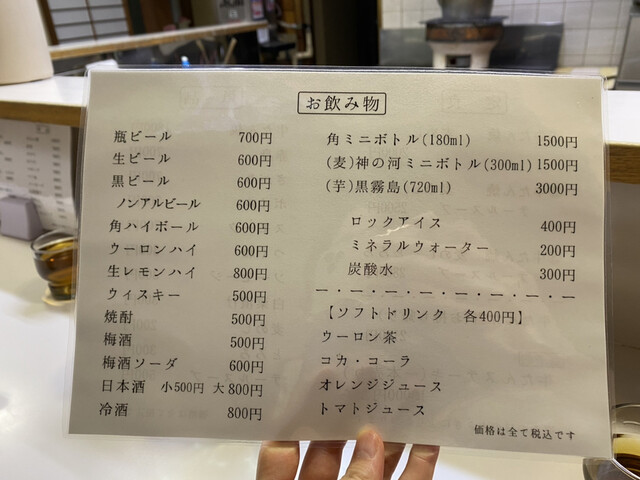 お飲み物
瓶ビール 700円
生ビール 600円
黒ビール 600円
ノンアルビール 600円
角ハイボール 600円
ウーロンハイ 600円
生レモンハイ 800円
ウィスキー 500円
焼酎 500円
梅酒 500円
梅酒ソーダ 600円
日本酒 小500円 大800円
冷酒 800円
角ミニボトル(180ml) 1500円
(麦)神の河ミニボトル(300ml) 1500円
(芋)黒霧島(720ml) 3000円
ロックアイス 400円
ミネラルウォーター 200円
炭酸水 300円
【ソフトドリンク 各400円】
ウーロン茶
コカ・コーラ
オレンジジュース
トマトジュース
価格は全て税込です